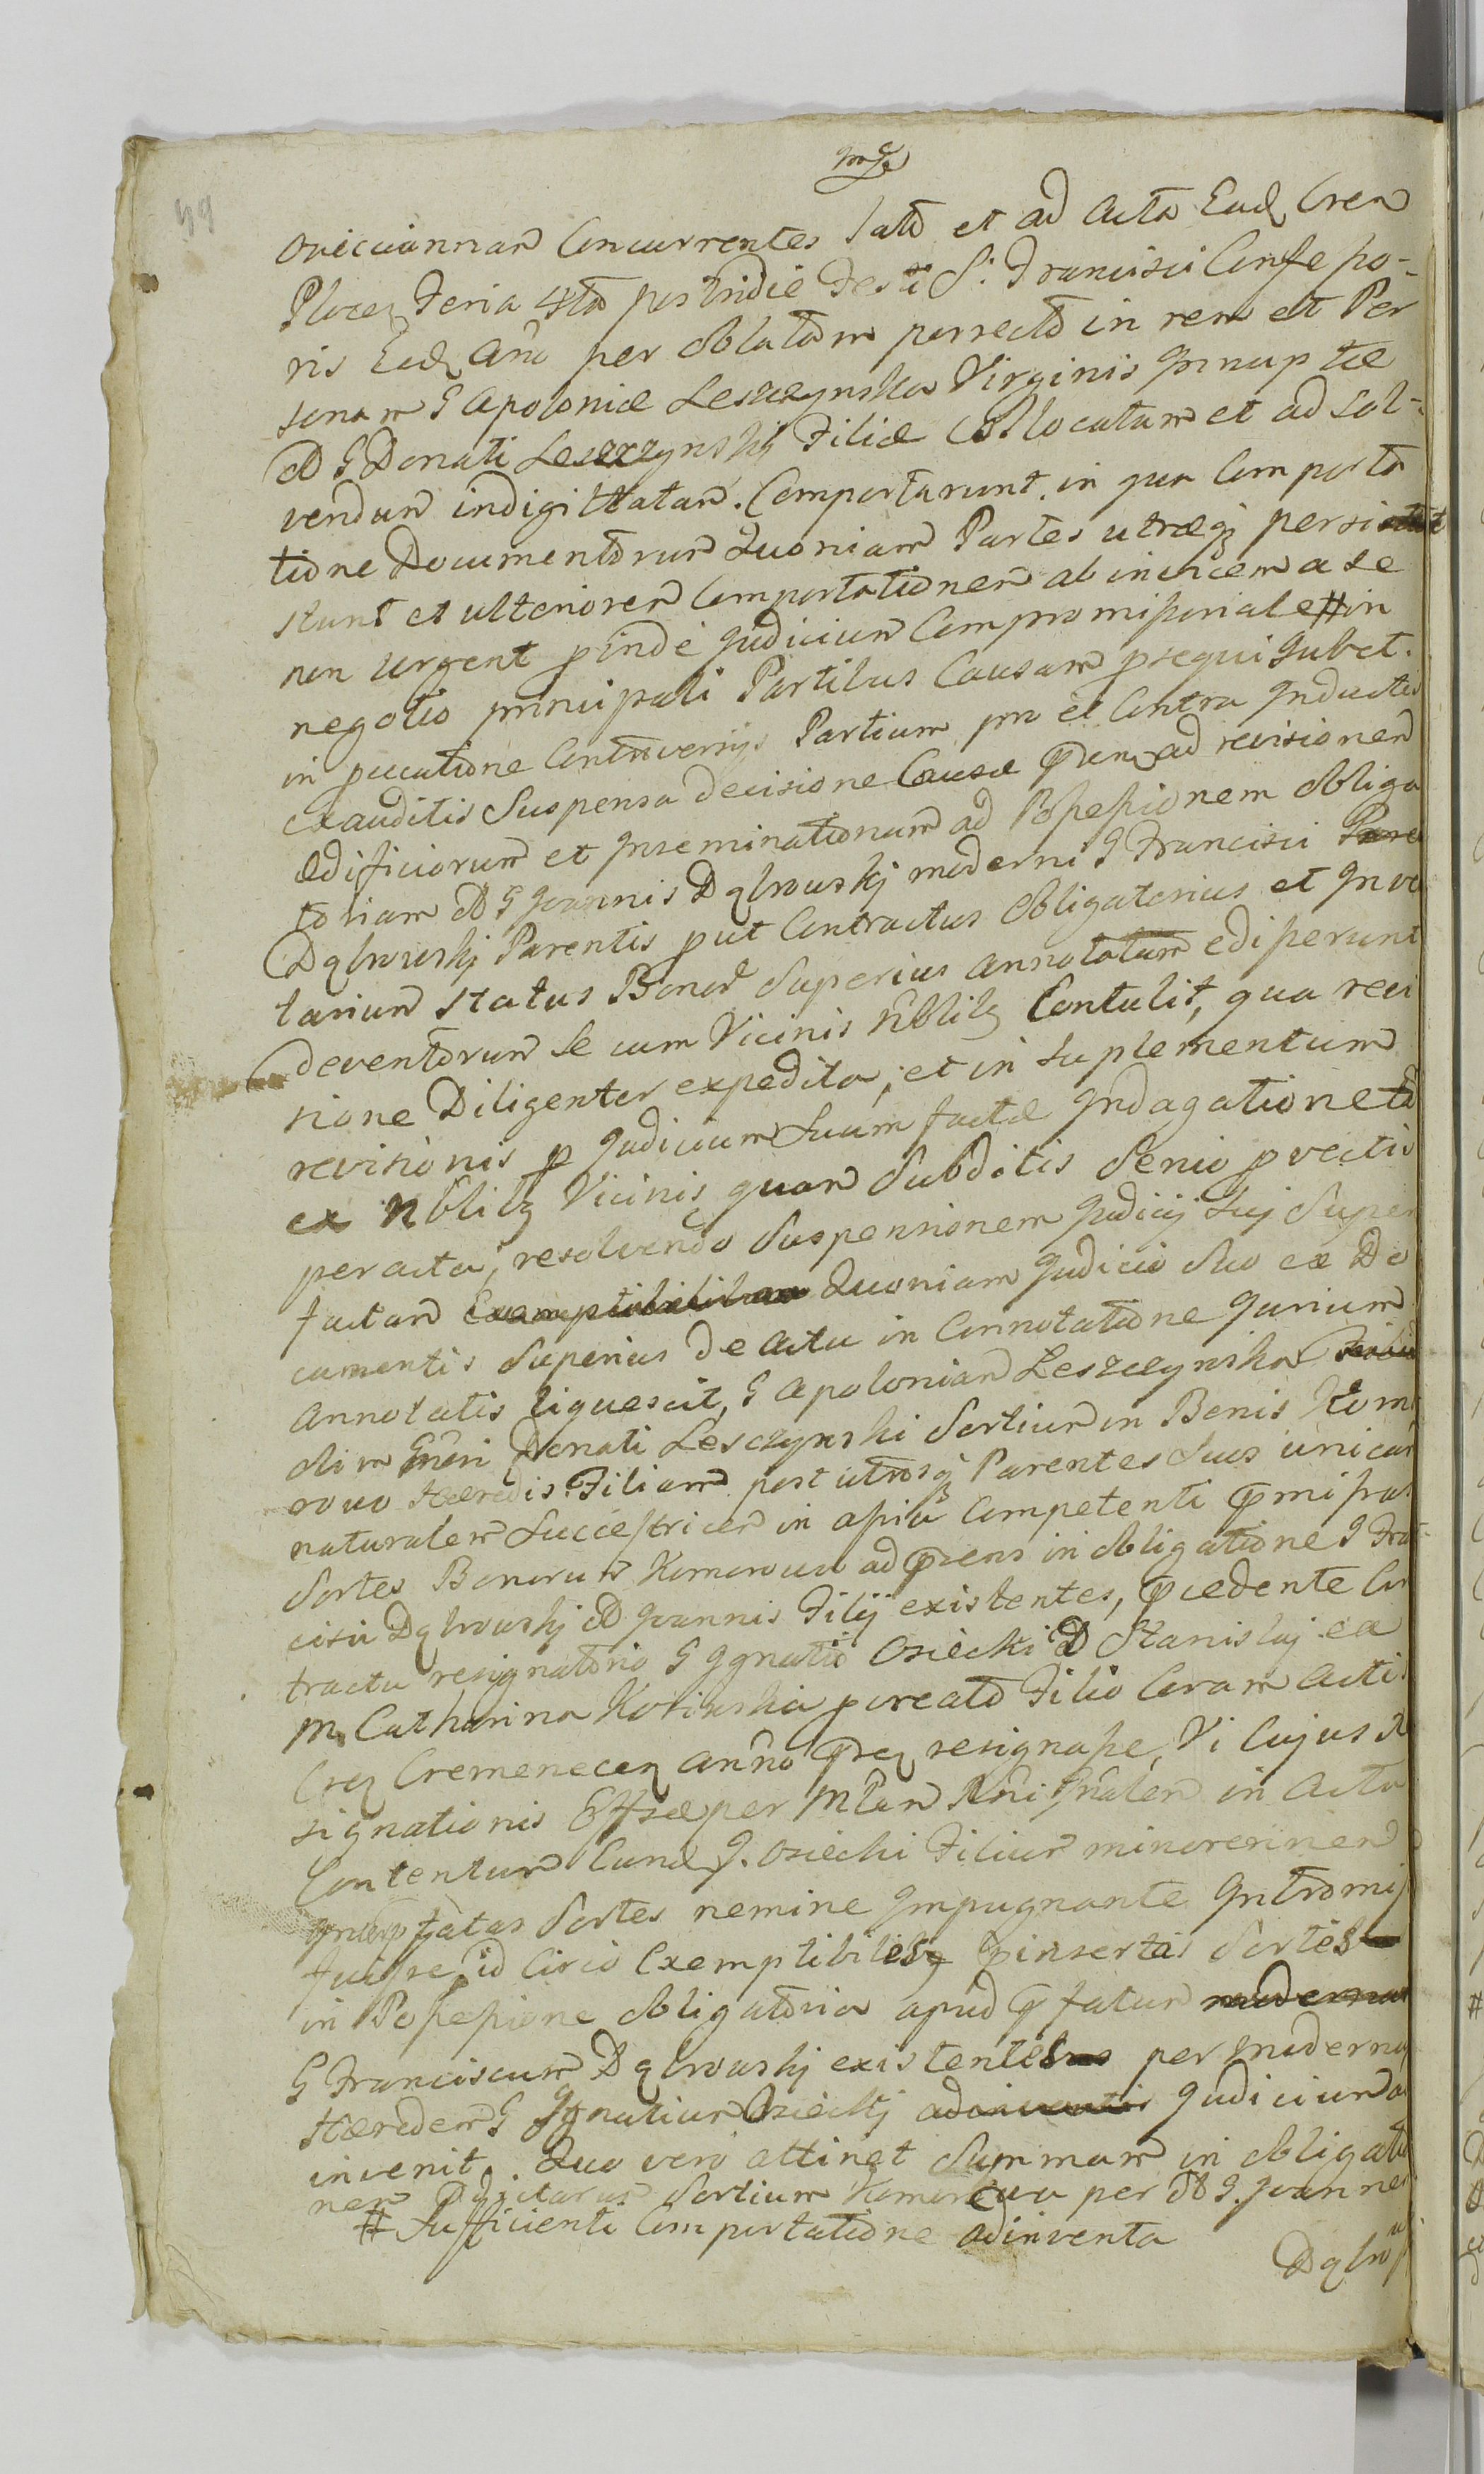 59
mqe
ovicciannam Concurrentes lato et ad Acta Eadq Cren
Plocen Feria 4ta postridie Festi S. Francisci Confeßo-
ris Eodq Ano per Oblatam porrecto in rem et Per
sonam G Apoloniæ Leszczynska Virginis Innuptæ
olb G Donati Leszczynskij Filiæ Collocatam et ad sol-
vendum indigittatam. Comportarunt. in qua Comporta
tione Documentorum Quoniam Partes utræq persi
stunt et ulteriorem Comportationem ab invicem a se
non urgent pinde Judicium Compromißoriale # in
negotio principali Partibus Causam psequi Jubet.
in pecutione Controversijs Partium pro et Contra Inductis
Exauditis Suspensa decisione Causæ pnen ad revisionem
Ædificiorum et Inseminationum ad Poßeßionem obliga
toriam olb G Joannis Dąbrowskj moderni G Francisci
Dąbrowskj Parentis put Contractus Obligatorius et Inve
tarium Status Bonor Superius annotatum edißerunt
deventorum Se cum Vicinis Nblibq Contulit, qua revi
sione Diligenter expedita, et in suplementum
revisionis p Judicium Suum factæ Indagatione to
ex Nblibq Vicinis quam Subditis Senio pvectis
peracta, resolvendo Suspensionem Judicij Suj Super
factam Quoniam Judicio Suo ex Do
cumentis Superius de actu in Connotatione Jurium
annotatis liquescit, G Apoloniam Leszczynska
olim Gneri Donati Lesczynski Sortium in Bonis Komo
rowo Hæredis Filiam post utrosq Parentes Suos unicam
naturalem Succeßricem in aßiâ Competenti pmißas
Sortes Bonorum Komorowo ad pens in obligatione G Fran-
cisci Dąbrowskj olb Joannis Filij existentes, pcedente Con
tractu resignatorio G Ignatio Osiecki olb Stanislaj ex
M. Catharina Kosinska pcreato Filio Coram Actis
Creq Cremenecen anno preq resignaße, Vi Cujus Re
signationis Eßæ per Mlem Rni Gnalem in Acta
Contentum Cund G. Osiecki Filium minorennem
in pfatas Sortes nemine Impugnante Intromiß
fuiße, id Circo Exemptibiles pinsertas Sortes
in Poßeßione obligatoria apud pfatum
G Franciscum Dąbrowskj existentes per modernu
Hæredem G Ignatium Osieckj Judicium ad
invenit. Quo vero attinet Summam in obligatio
nem Dictarum Sortium Komorowo per olb G. Joannem
# Sufficienti Comportatione adinventa
Dąbrows